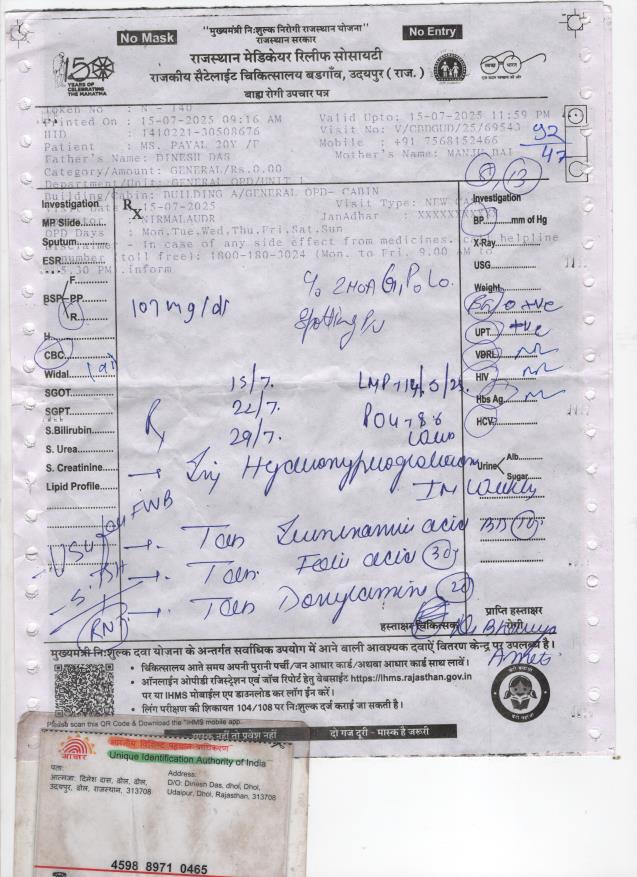 No Mask
"मुख्यमंत्री नि:शुल्क निरोगी राजस्थान योजना"
राजस्थान सरकार
No Entry
राजस्थान मेडिकेयर रिलीफ सोसायटी
राजकीय सैटेलाईट चिकित्सालय बडगाँव, उदयपुर (राज.)
बाह्य रोगी उपचार पत्र
YEARS OF CELEBRATING THE MAHATMA
Token No : N - 140
Printed On : 15-07-2025 09:16 AM Valid Upto: 15-07-2025 11:59 PM
HID : 1410221-30508676 Visit No: V/CBDGUD/25/69543
Patient : MS. PAYAL 20Y /F Mobile : +91 7568152466
Father's Name: DINESH DAS Mother's Name: MANJU BAI
Category/Amount: GENERAL/Rs.0.00
Department/Unit: GENERAL OPD/UNIT 1
Building/Cabin: BUILDING A/GENERAL OPD- CABIN
15-07-2025 Visit Type: NEW
NIRMALAUDR JanAadhar : XXXXXXXXXX
OPD Days : Mon,Tue,Wed,Thu,Fri,Sat,Sun
- In case of any side effect from medicines, call helpline
number (toll free): 1800-180-3024 (Mon. to Fri. 9.00 AM to
5.30 PM).inform
92
47
8, 13
Investigation
MP Slide
Sputum
ESR
F.
BSP PP
R.
H
CBC
Widal
SGOT
SGPT
S.Bilirubin
S. Urea
S. Creatinine
Lipid Profile
Rx
107 mg/dl
C/o 2 MOA G1 P0 L0
Spotting P/V
15/7. LMP → 14/5/25
22/7.
29/7.
POU → 88
→ Inj
IM Weekly
→ Tab acid BD
→ Tab Folic acid 30
→ Tab Doxylamine 20
USG FWB
- S. TSH
Investigation
BP mm of Hg
X-Ray
USG
Weight
BG O +ve
UPT +ve
VDRL NR
HIV NR
Hbs Ag NR
HCV
Urine Alb.
Sugar
हस्ताक्षर चिकित्सक
प्राप्ति हस्ताक्षर
रोगी
मुख्यमंत्री नि:शुल्क दवा योजना के अन्तर्गत सर्वाधिक उपयोग में आने वाली आवश्यक दवाऐं वितरण केन्द्र पर उपलब्ध है।
• चिकित्सालय आते समय अपनी पुरानी पर्ची/जन आधार कार्ड/अथवा आधार कार्ड साथ लावें।
• ऑनलाईन ओपीडी रजिस्ट्रेशन एवं जाँच रिपोर्ट हेतु वेबसाईट https://ihms.rajasthan.gov.in
पर या IHMS मोबाईल एप डाउनलोड कर लॉग ईन करें।
• लिंग परीक्षण की शिकायत 104/108 पर नि:शुल्क दर्ज कराई जा सकती है।
Please scan this QR Code & Download the "IHMS mobile app
मास्क नहीं तो प्रवेश नहीं
दो गज दूरी - मास्क है जरूरी
आधार
भारतीय विशिष्ट पहचान प्राधिकरण
Unique Identification Authority of India
पता:
आत्मजा: दिनेश दास, ढोल, ढोल,
उदयपुर, ढोल, राजस्थान, 313708
Address:
D/O: Dinesh Das, dhol, Dhol,
Udaipur, Dhol, Rajasthan, 313708
4598 8971 0465